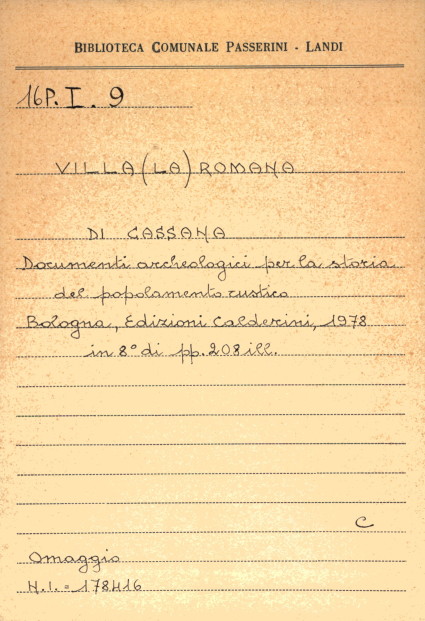 BIBLIOTECA COMUNALE PASSERINI - LANDI
16P. I. 9
VILLA (LA) ROMANA
DI CASSANA
Documenti archeologici per la storia
del popolamento rustico
Bologna, Edizioni Calderini, 1978
in 8° di pp. 208 ill.
C
Omaggio
N.I. = 178416